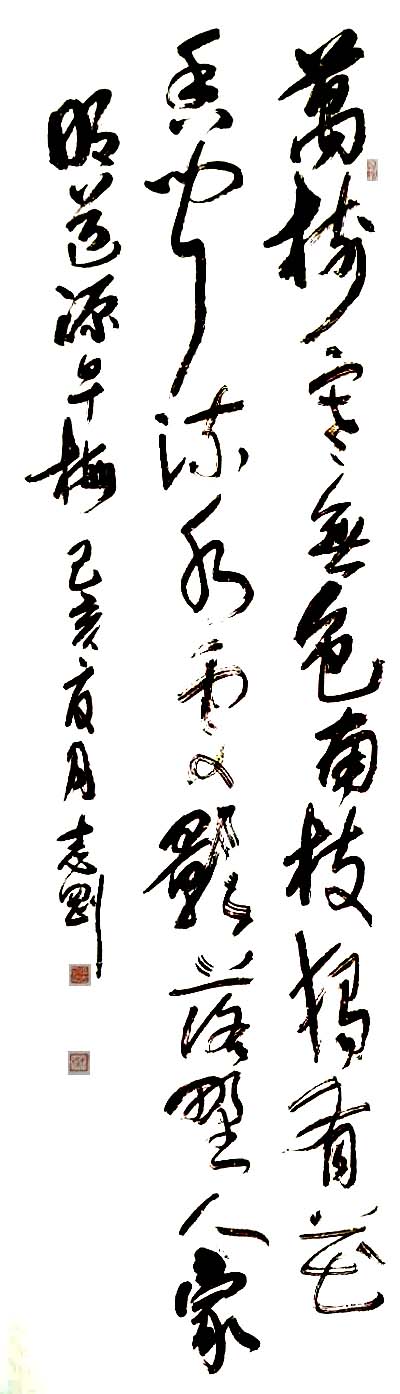 萬樹寒無色南枝獨有花
香聞流水處影落野人家
明道源早梅 己亥夏月 志剛